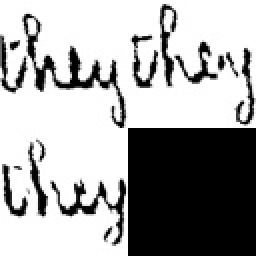 they they
they